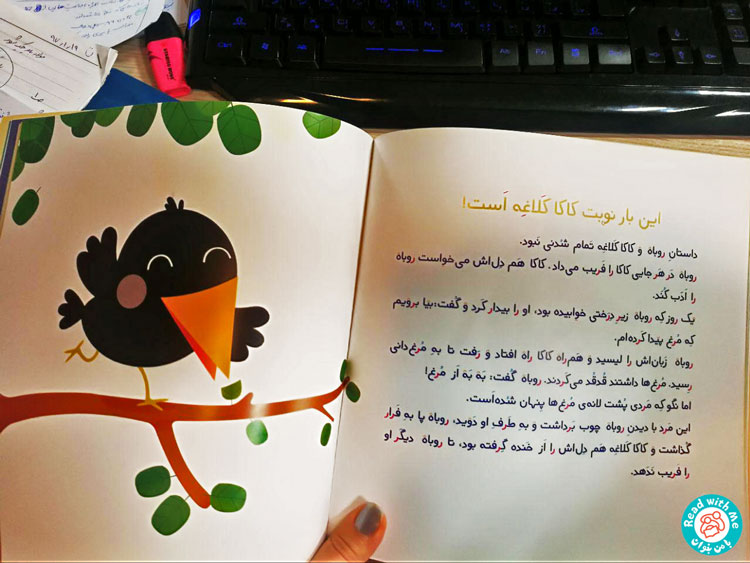 این بار نوبت کاکا کَلاغه اَست!
داستانِ روباه وَ کاکا کَلاغه تَمام شُدنی نَبود.
روباه دَر هَر جایی کاکا را فَریب می‌داد. کاکا هَم دِل‌اش می‌خواست روباه
را اَدَب کُنَد.
یک روز که روباه زیر دِرَختی خوابیده بود، او را بیدار کَرد وَ گُفت: بیا بِرویم
که مُرغ پیدا کَرده‌ام.
روباه زَبان‌اش را لیسید وَ هَم‌راه کاکا راه افتاد وَ رَفت تا به مُرغ‌دانی
رِسید. مُرغ‌ها داشتند قُدقُد می‌کَردند. روباه گُفت: بَه بَه اَز مُرغ!
اما نگو که مَردی پُشت لانه‌ی مُرغ‌ها پِنهان شُده‌اَست.
این مَرد با دیدنِ روباه چوب بَرداشت وَ به طَرفِ او دَوید، روباه پا به فَرار
گُذاشت وَ کاکا کَلاغه هَم دِل‌اش را اَز خَنده گِرفته بود، تا روباه دیگَر او
را فَریب نَدَهد.
Read with Me
با من بخوان